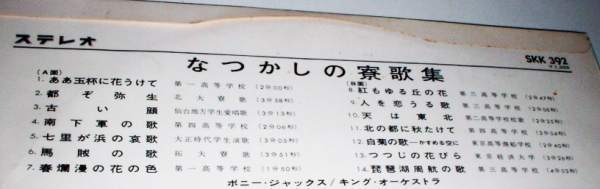 ステレオ
SKK 392
なつかしの寮歌集
(A面)
1. ああ玉杯に花うけて 第一高等学校 (2分00秒)
2. 都ぞ弥生 北大寮歌 (3分58秒)
3. 古い顔 仙台地方学生愛唱歌 (3分13秒)
4. 南下軍の歌 第四高等学校 (2分06秒)
5. 七里が浜の哀歌 大正時代学生演歌 (3分03秒)
6. 馬賊の歌 拓大寮歌 (3分51秒)
7. 春爛漫の花の色 第一高等学校 (1分50秒)
(B面)
8. 紅もゆる丘の花 第三高等学校 (2分47秒)
9. 人を恋うる歌 第三高等学校
10. 天は東北 第二高等学校
11. 北の都に秋たけて 第四高等学校
12. 白菊の歌―かすめる空に 東京高等商船学校 (2分40秒)
13. つつじの花びら 東京経済大学
14. 琵琶湖周航の歌 第三高等学校
ボニー・ジャックス/キング・オーケストラ